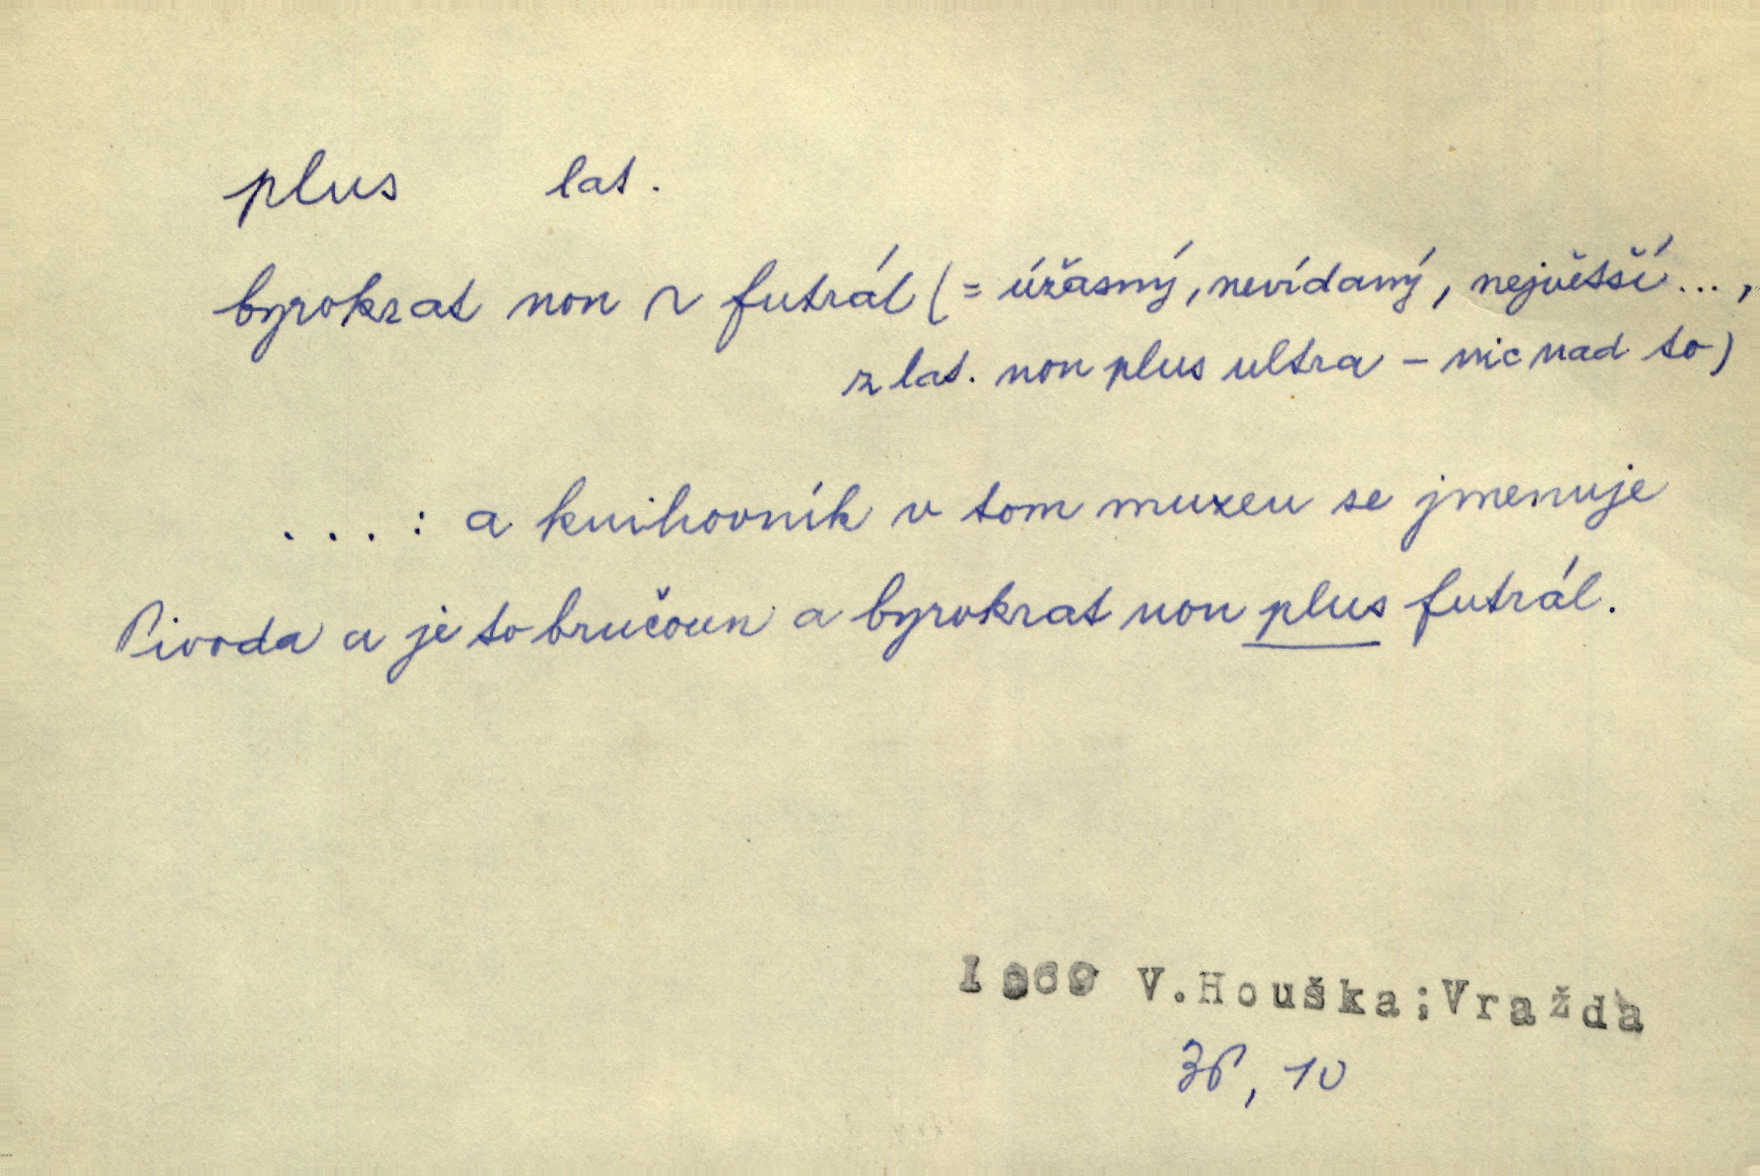 plus lat.
byrokrat non ~ futrál (= úžasný, nevídaný, největší...,
z lat. non plus ultra – nic nad to)
. . . : a knihovník v tom muzeu se jmenuje
Pivoda a je to bručoun a byrokrat non plus futrál.
1969 V.Houška;Vražda
36, 10